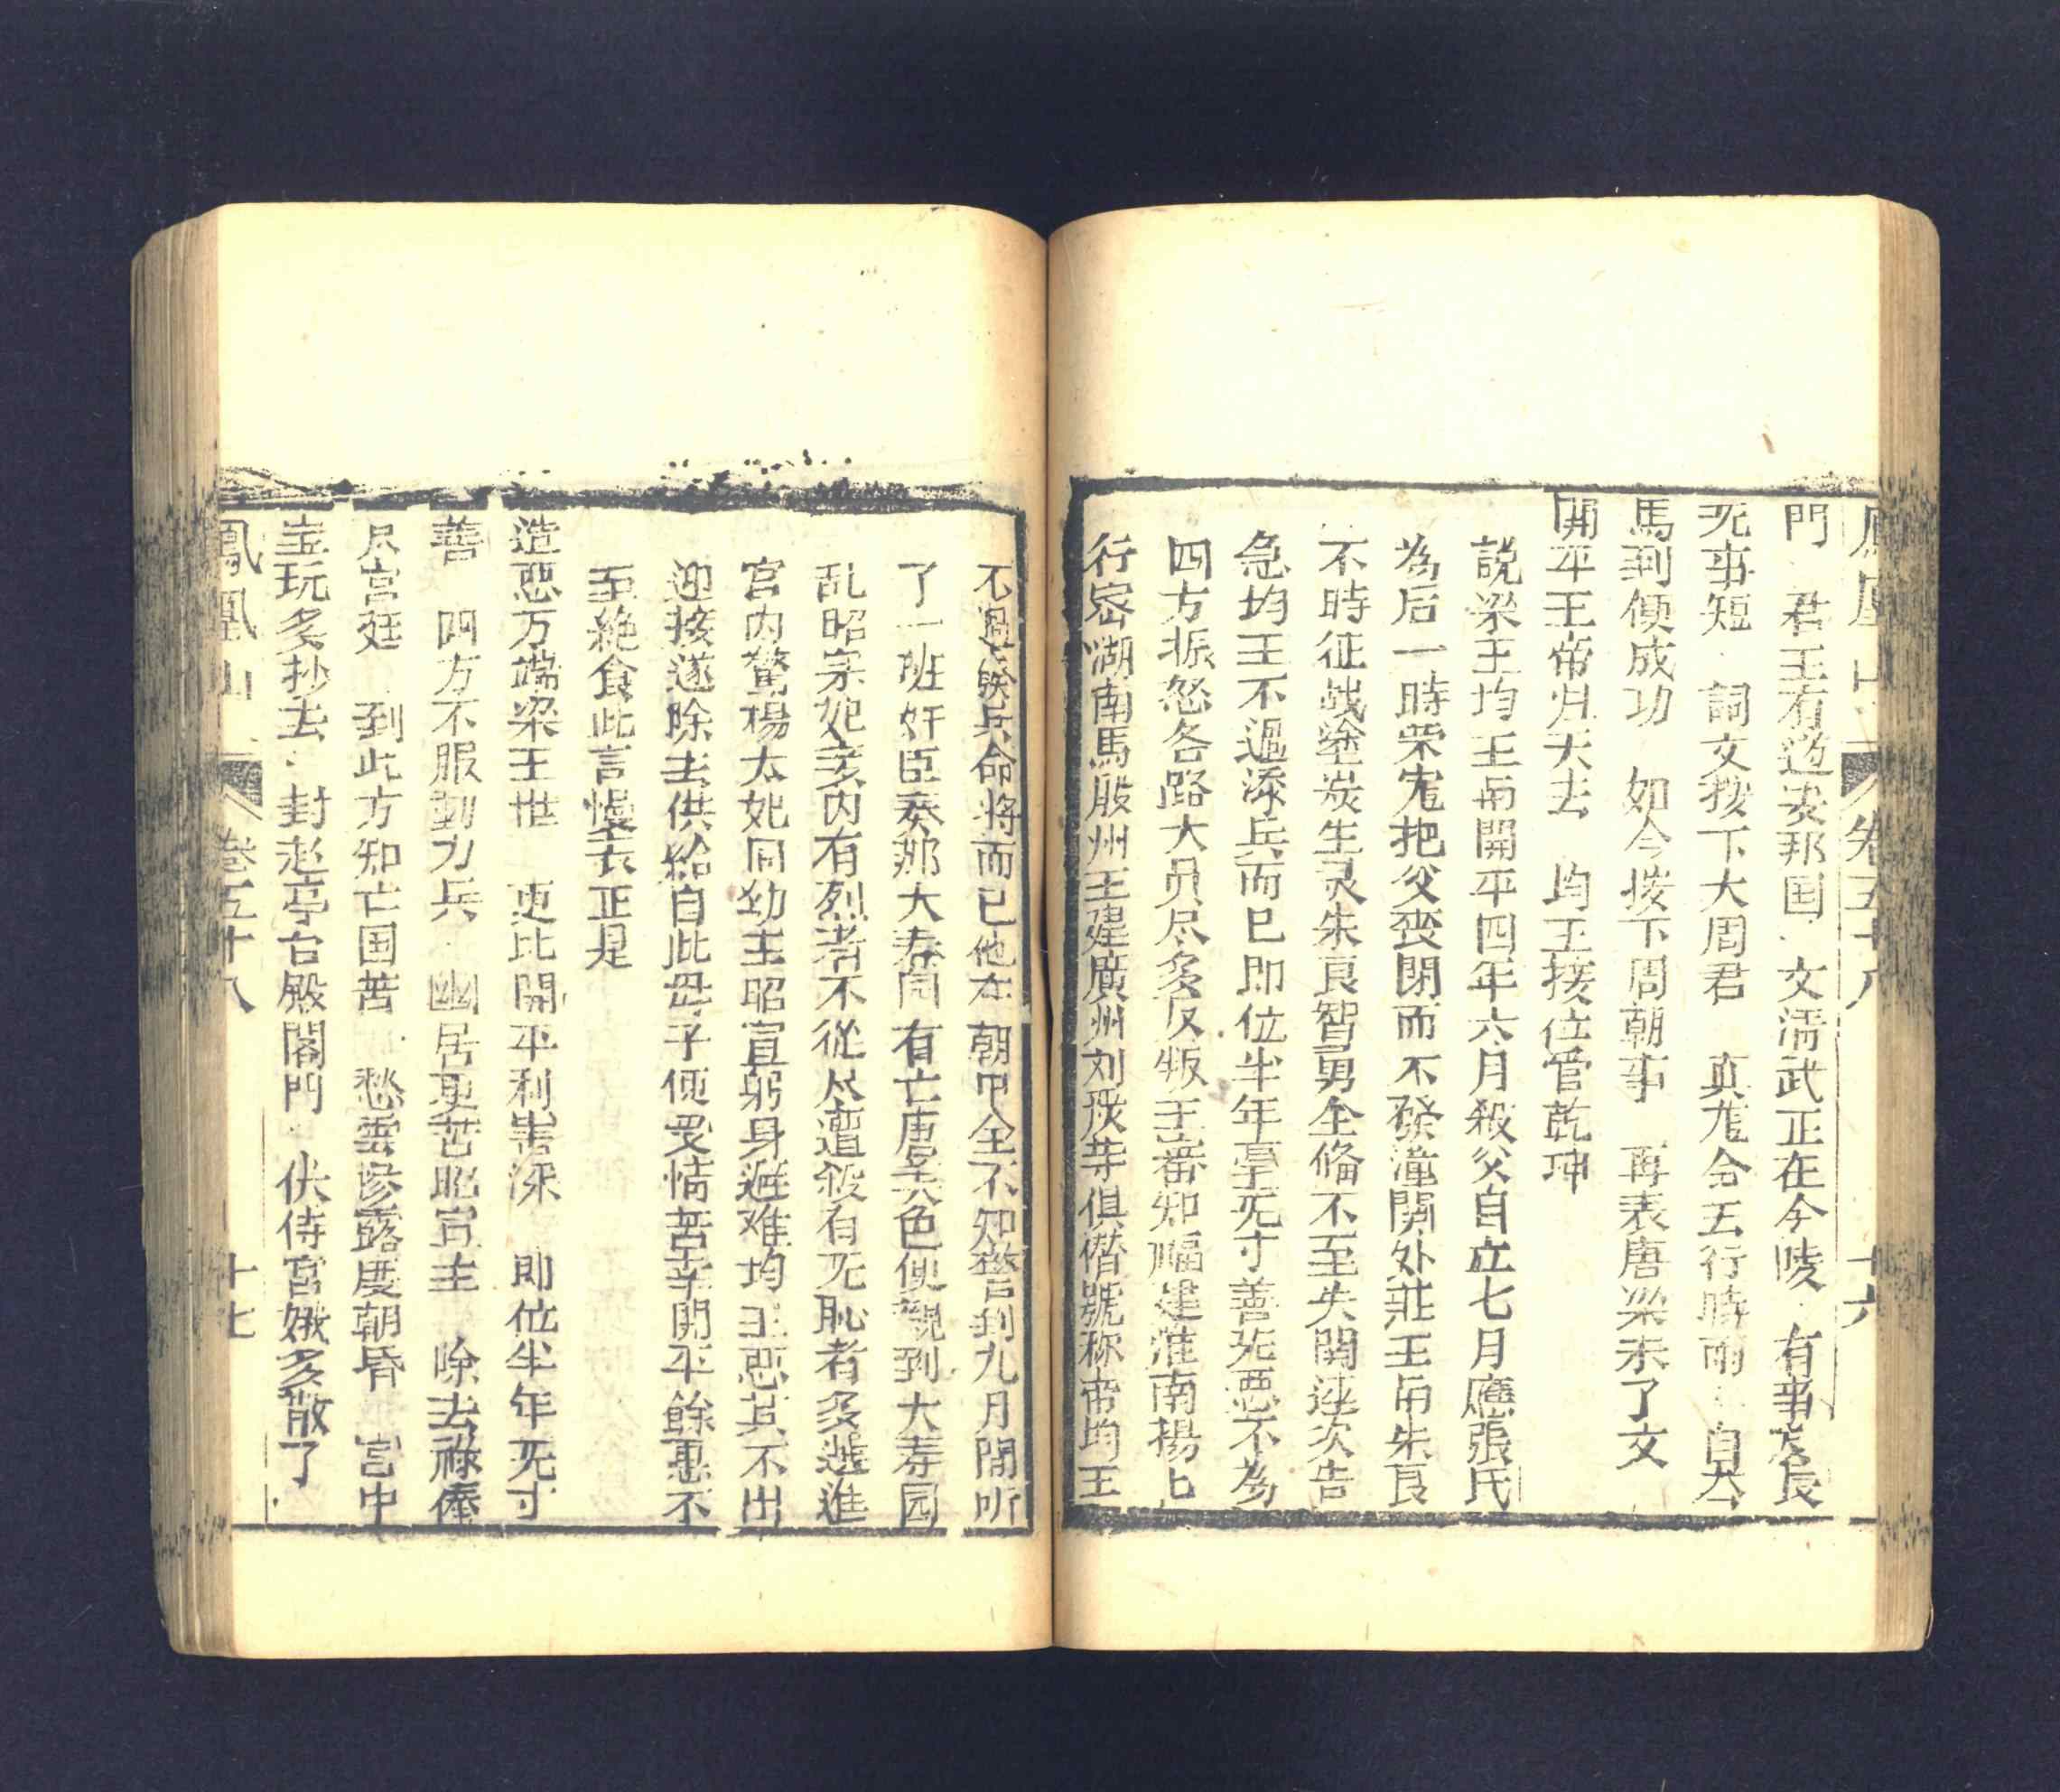 鳳凰山 卷五十八 十六
門 君王有道安邦国 文濡武正在今陵 有事 長
无事短 詞文按下大周君 真龙 五行時雨 自
馬到便成功 如今按下周朝事 再表唐梁末了文
開平王帝归天去 均王接位管乾坤
說梁王均王 開平四年六月殺父自立七月應張氏
為后一時荣寃把父喪閉而不發潼關外莊王 朱良
不時征战塗炭生灵朱良智勇全俻不至失關連次告
急均王不過添兵而已即位半年 无寸善 惡不為
四方振怒各路大員尽多反叛王 知福建淮南楊
行密湖南馬殷州王建廣州刘 等俱僣號称帝均王
不過發兵命將而已他在朝中全不知警到九月間听
了一班奸臣奏那大春同有亡唐 色便 到大寿园
乱昭宗妃妾内有烈者不從尽遭殺有无恥者多 進
宫内驚楊太妃同幼主昭宣躬身避难均王惡其不出
迎接遂除去供給自此母子便受情苦辛開平餘惠不
至絶食此言慢表正是
造惡万端梁王世 更比開平利害深 即位半年无寸
善 四方不服動刀兵 幽居更苦昭宣主 除去祿俸
尽宫廷 到此方知亡国苦 愁雲慘露度朝昏 宫中
宝玩多抄去 封起亭台殿閣門 伏侍宮娥多散了
鳳凰山 卷五十八 十七